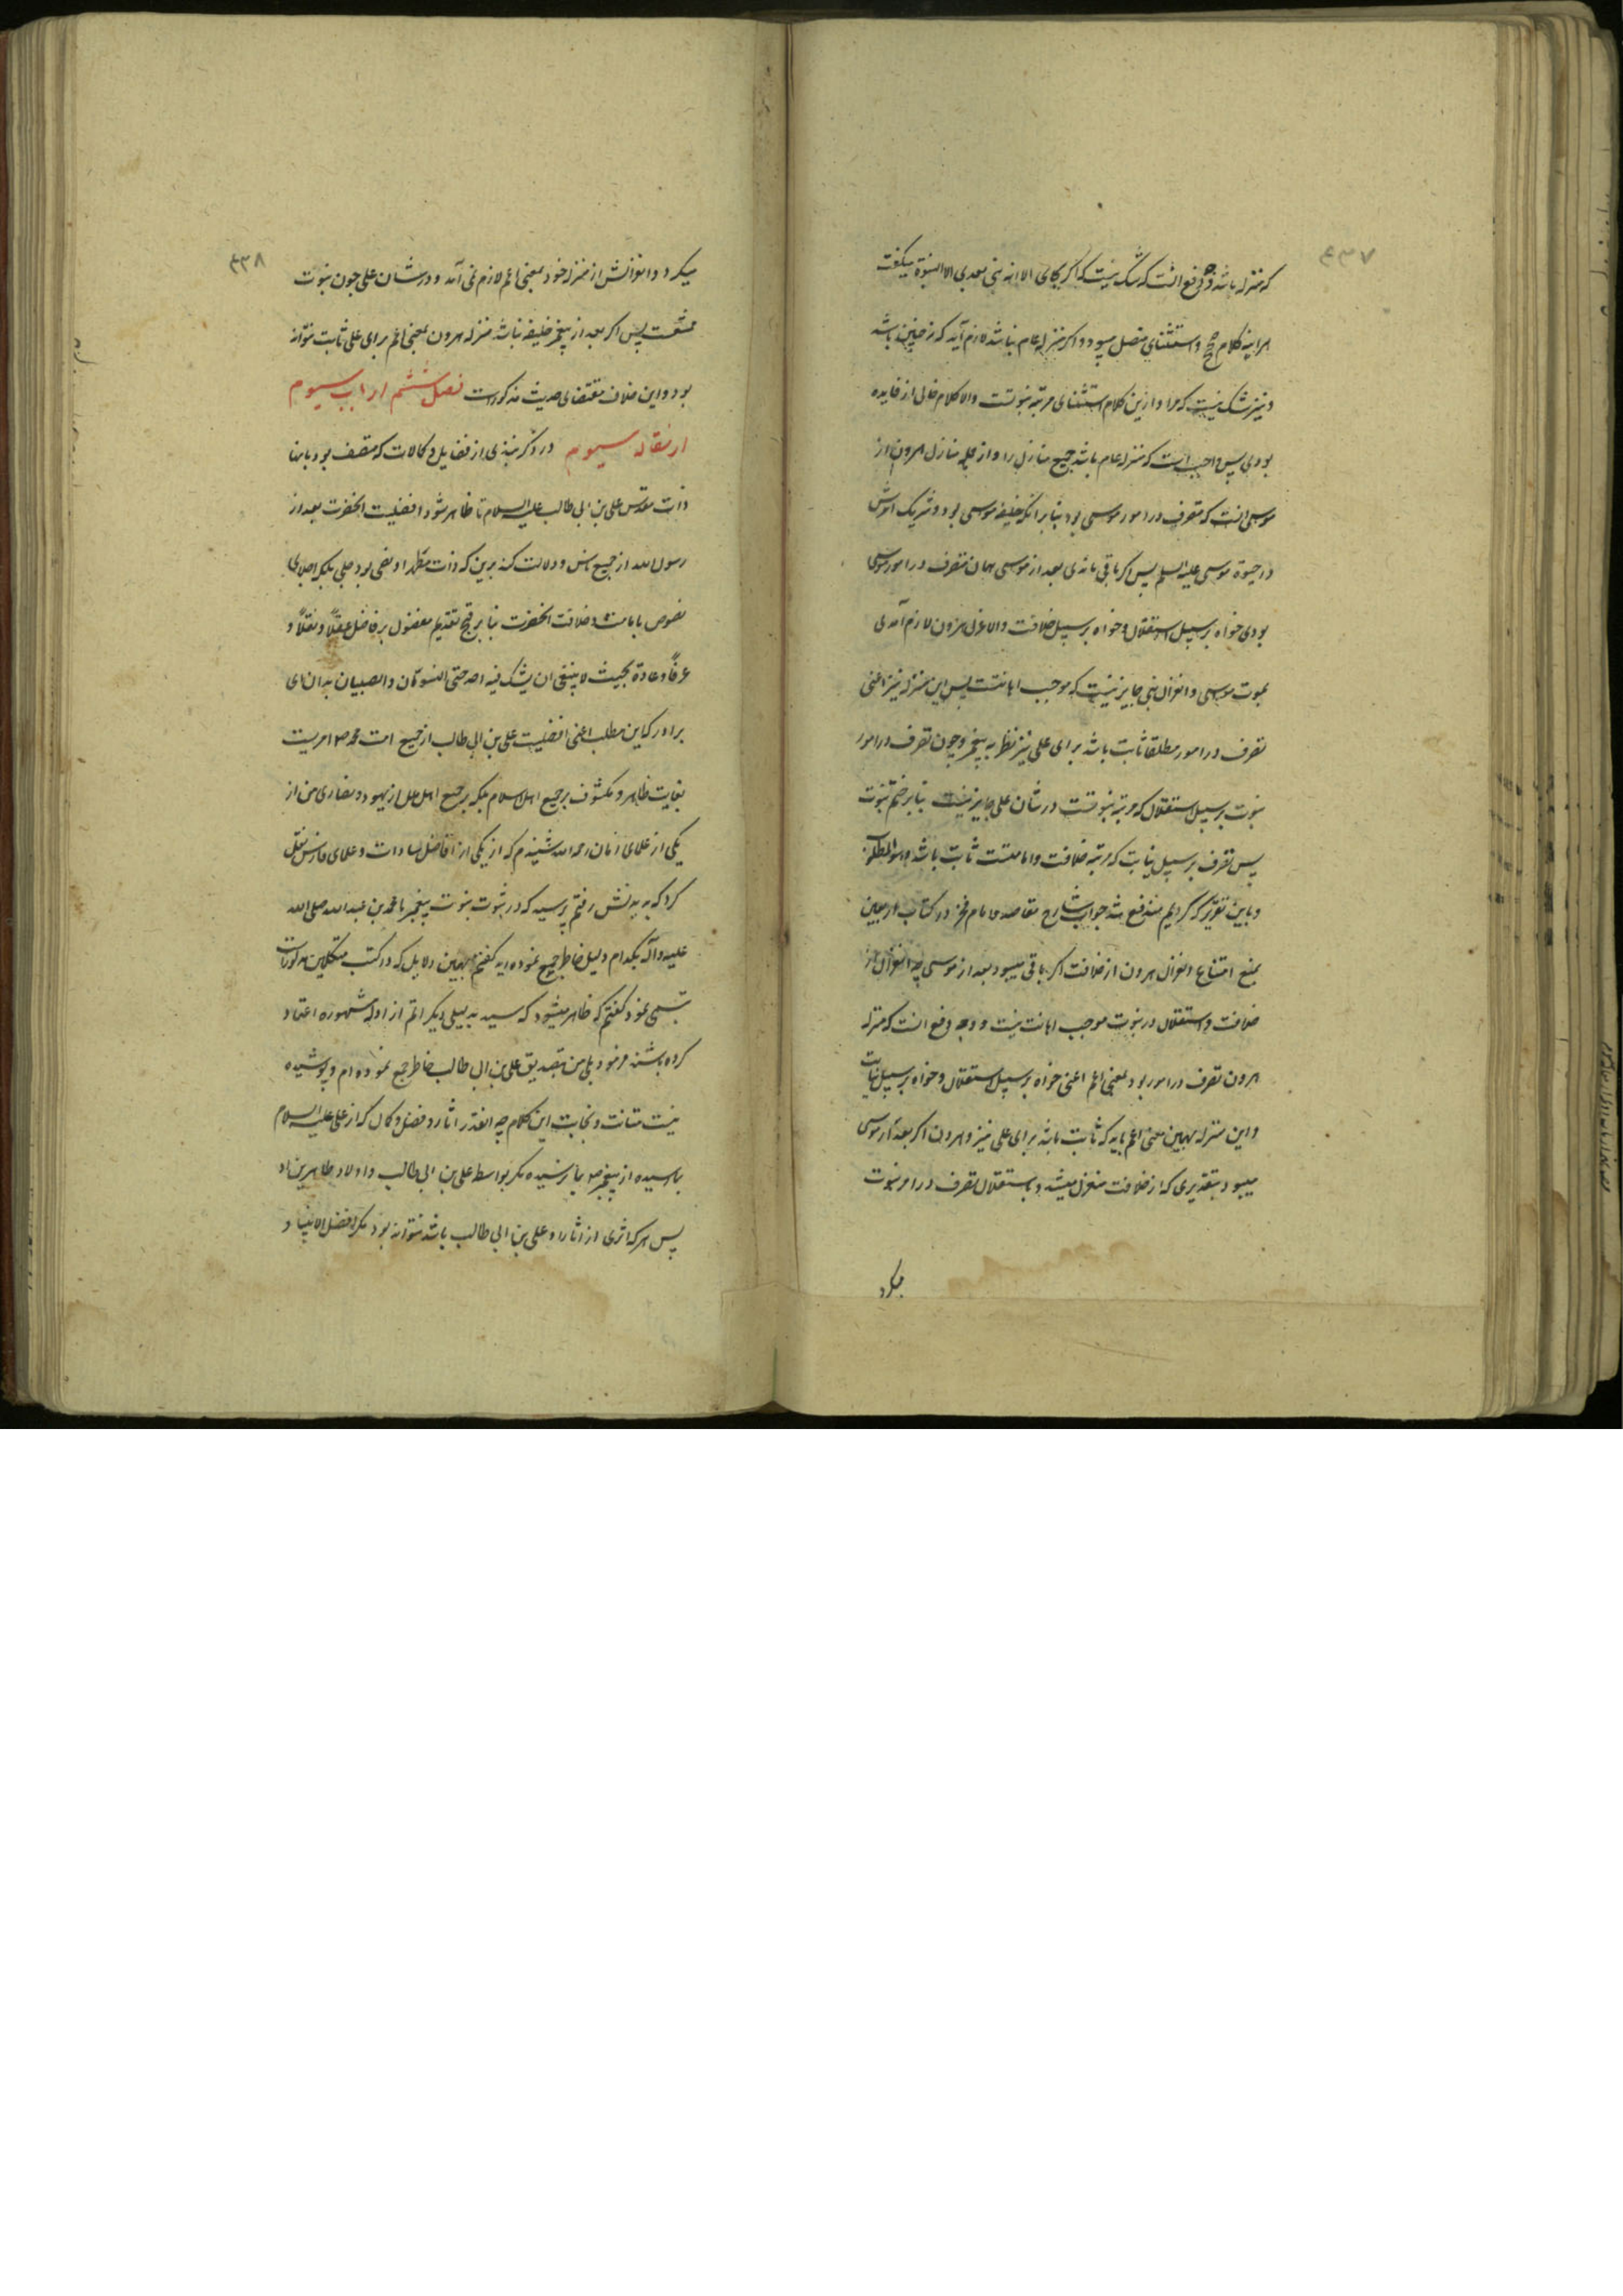 ۴۳۷
که منزله باشد وجه دفع آنست که شک نیست که اگر بجای الا انه لا نبی بعدی الا النبوة میگفت
هراینه کلام صحیح و استثنای متصل میبود و اگر منزله عام نباشد لازم آید که نه چنین باشد
و نیز شک نیست که مراد ازین کلام استثنای مرتبه نبوتست والا کلام خالی از فایده
بودی پس واجبست که منزله عام باشد جمیع منازل را و از جمله منازل هرون از
موسی آنست که متصرف در امور موسی بود بنا بر انکه خلیفه موسی بود و شریک امرش
در حیوة موسی علیه السلم پس اگر باقی ماندی بعد از موسی همان متصرف در امور موسی
بودی خواه بر سبیل استقلال و خواه بر سبیل خلافت والا عزل هرون لازم آمدی
بموت موسی و انعزال نبی جایز نیست که موجب اهانتست پس این منزله نیز اعنی
تصرف در امور مطلقا ثابت باشد برای علی نیز نظر به پیغمبر و چون تصرف در امور
نبوت بر سبیل استقلال که مرتبه نبوتست در شان علی جایز نیست بنا بر ختم نبوت
پس تصرف بر سبیل نیابت که مرتبه خلافت و امامتست ثابت باشد و هو المطلوب
و باین تقریر که کردیم مندفع شد جواب شارح مقاصد و امام فخر در کتاب اربعین
بمنع امتناع انعزال هرون از خلافت اگر باقی میبود بعد از موسی چه انعزال از
خلافت و استقلال در نبوت موجب اهانت نیست و وجه دفع آنست که منزله
هرون تصرف در امور بود بمعنی اعم اعنی خواه بر سبیل استقلال و خواه بر سبیل نیابت
و این منزله بهمین معنی اعم باید که ثابت باشد برای علی نیز و هرون اگر بعد از موسی
میبود بتقدیری که از خلافت منعزل میشد و باستقلال تصرف در امر نبوت
میکرد
۴۳۸
میکرد و انعزالش از منزله خود بمعنی اعم لازم نمی آمد و در شان علی چون نبوت
ممتنعست پس اگر بعد از پیغمبر خلیفه نباشد منزله هرون بمعنی اعم برای علی ثابت نتواند
بود و این خلاف مقتضای حدیث مذکورست فصل ششم از باب سیوم
از مقاله سیوم در ذکر نبذی از فضایل و کمالات که متصف بود بانها
ذات مقدس علی بن ابی طالب علیه السلام تا ظاهر شود افضلیت انحضرت بعد از
رسول الله از جمیع ناس و دلالت کند برین که ذات مطهر او نص جلی بود بلکه اجلای
نصوص بامامت و خلافت انحضرت بنا بر قبح تقدیم مفضول بر فاضل عقلاً و نقلاً و
عرفاً و عادة بحیث لا ینبغی ان یشک فیه احد حتی النسوان و الصبیان بدان ای
برادر که این مطلب اعنی افضلیت علی بن ابی طالب از جمیع امت محمد ص امریست
بغایت ظاهر و مکشوف بر جمیع اهل اسلام بلکه بر جمیع اهل ملل از یهود و نصاری من از
یکی از علمای زمان رحمه الله شنیدم که از یکی از افاضل سادات و علمای فارس نقل
کرد که به دیدنش رفتم پرسید که در ثبوت نبوت پیغمبر ما محمد بن عبدالله صلی الله
علیه و آله بکدام دلیل خاطر جمع نموده اید گفتم بهمین دلایل که در کتب متکلمین مذکورست
تبسمی نمود گفتم که ظاهر میشود که سید به دلیلی دیگر اتم از ادله مشهوره اعتماد
کرده باشند فرمود بلی من بتصدیق علی بن ابی طالب خاطر جمع نموده ام و پوشیده
نیست متانت و نجابت این کلام چه انقدر اثار و فضل و کمال که از علی علیه السلام
بما رسیده از پیغمبر ص بما نرسیده مگر بواسطه علی بن ابی طالب و اولاد طاهرین او
پس هر که اثری از اثار او علی بن ابی طالب باشد نتواند بود مگر افضل الانبیاء و